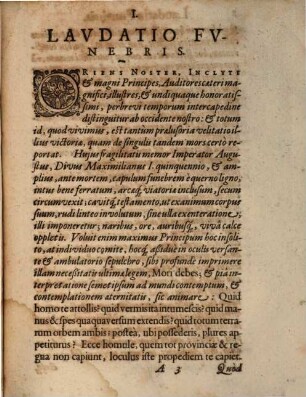 I.
LAVDATIO FV-
NEBRIS.
ORIENS NOSTER, INCLYTI
& magni Principes, Auditores cæteri ma-
gnifici, illustres, & undiquaque honoratis-
simi, perbrevi temporum intercapedine
distinguitur ab occidente nostro: & totum
id, quod vivimus, est tantùm prælusoria velitatio il-
lius victoria, quam de singulis tandem mors certò re-
portat. Hujus fragilitatis memor Imperator Augu-
stus, Divus Maximilianus I. quinquennio, & am-
plius, ante mortem, capulum funebrem è querno ligno,
intus bene ferratum, arcæq́; viatoria inclusum, secum
circumvexit, cavitq́; testamento, ut exanimum corpus
suum, rudi linteo involutum, sine ulla exenteratione,
illi imponeretur, naribus, ore, auribusq́;, vivâ calce
oppletis. Voluit enim maximus Principum hoc in soli-
to, at individuo comite, hocq́; assiduè in oculis versan-
te & ambulatorio sepulchro, sibi profundè imprimere
illam necessitatis ultimæ legem, Mori debes; & piâ in-
terpretatione semet ipsum ad mundi contemptum, &
contemplationem æternitatis, sic animare: Quid
homo te attollis? quid vermis ita intumescis? quid ma-
nus & spes quaquaversum extendis? quid totum terra-
rum orbem ambis? postea, ubi possederis, plures ap-
petiturus? Ecce homule, quem tot provinciæ & re-
gna non capiunt, loculus iste propediem te capiet.
A 3 Quod